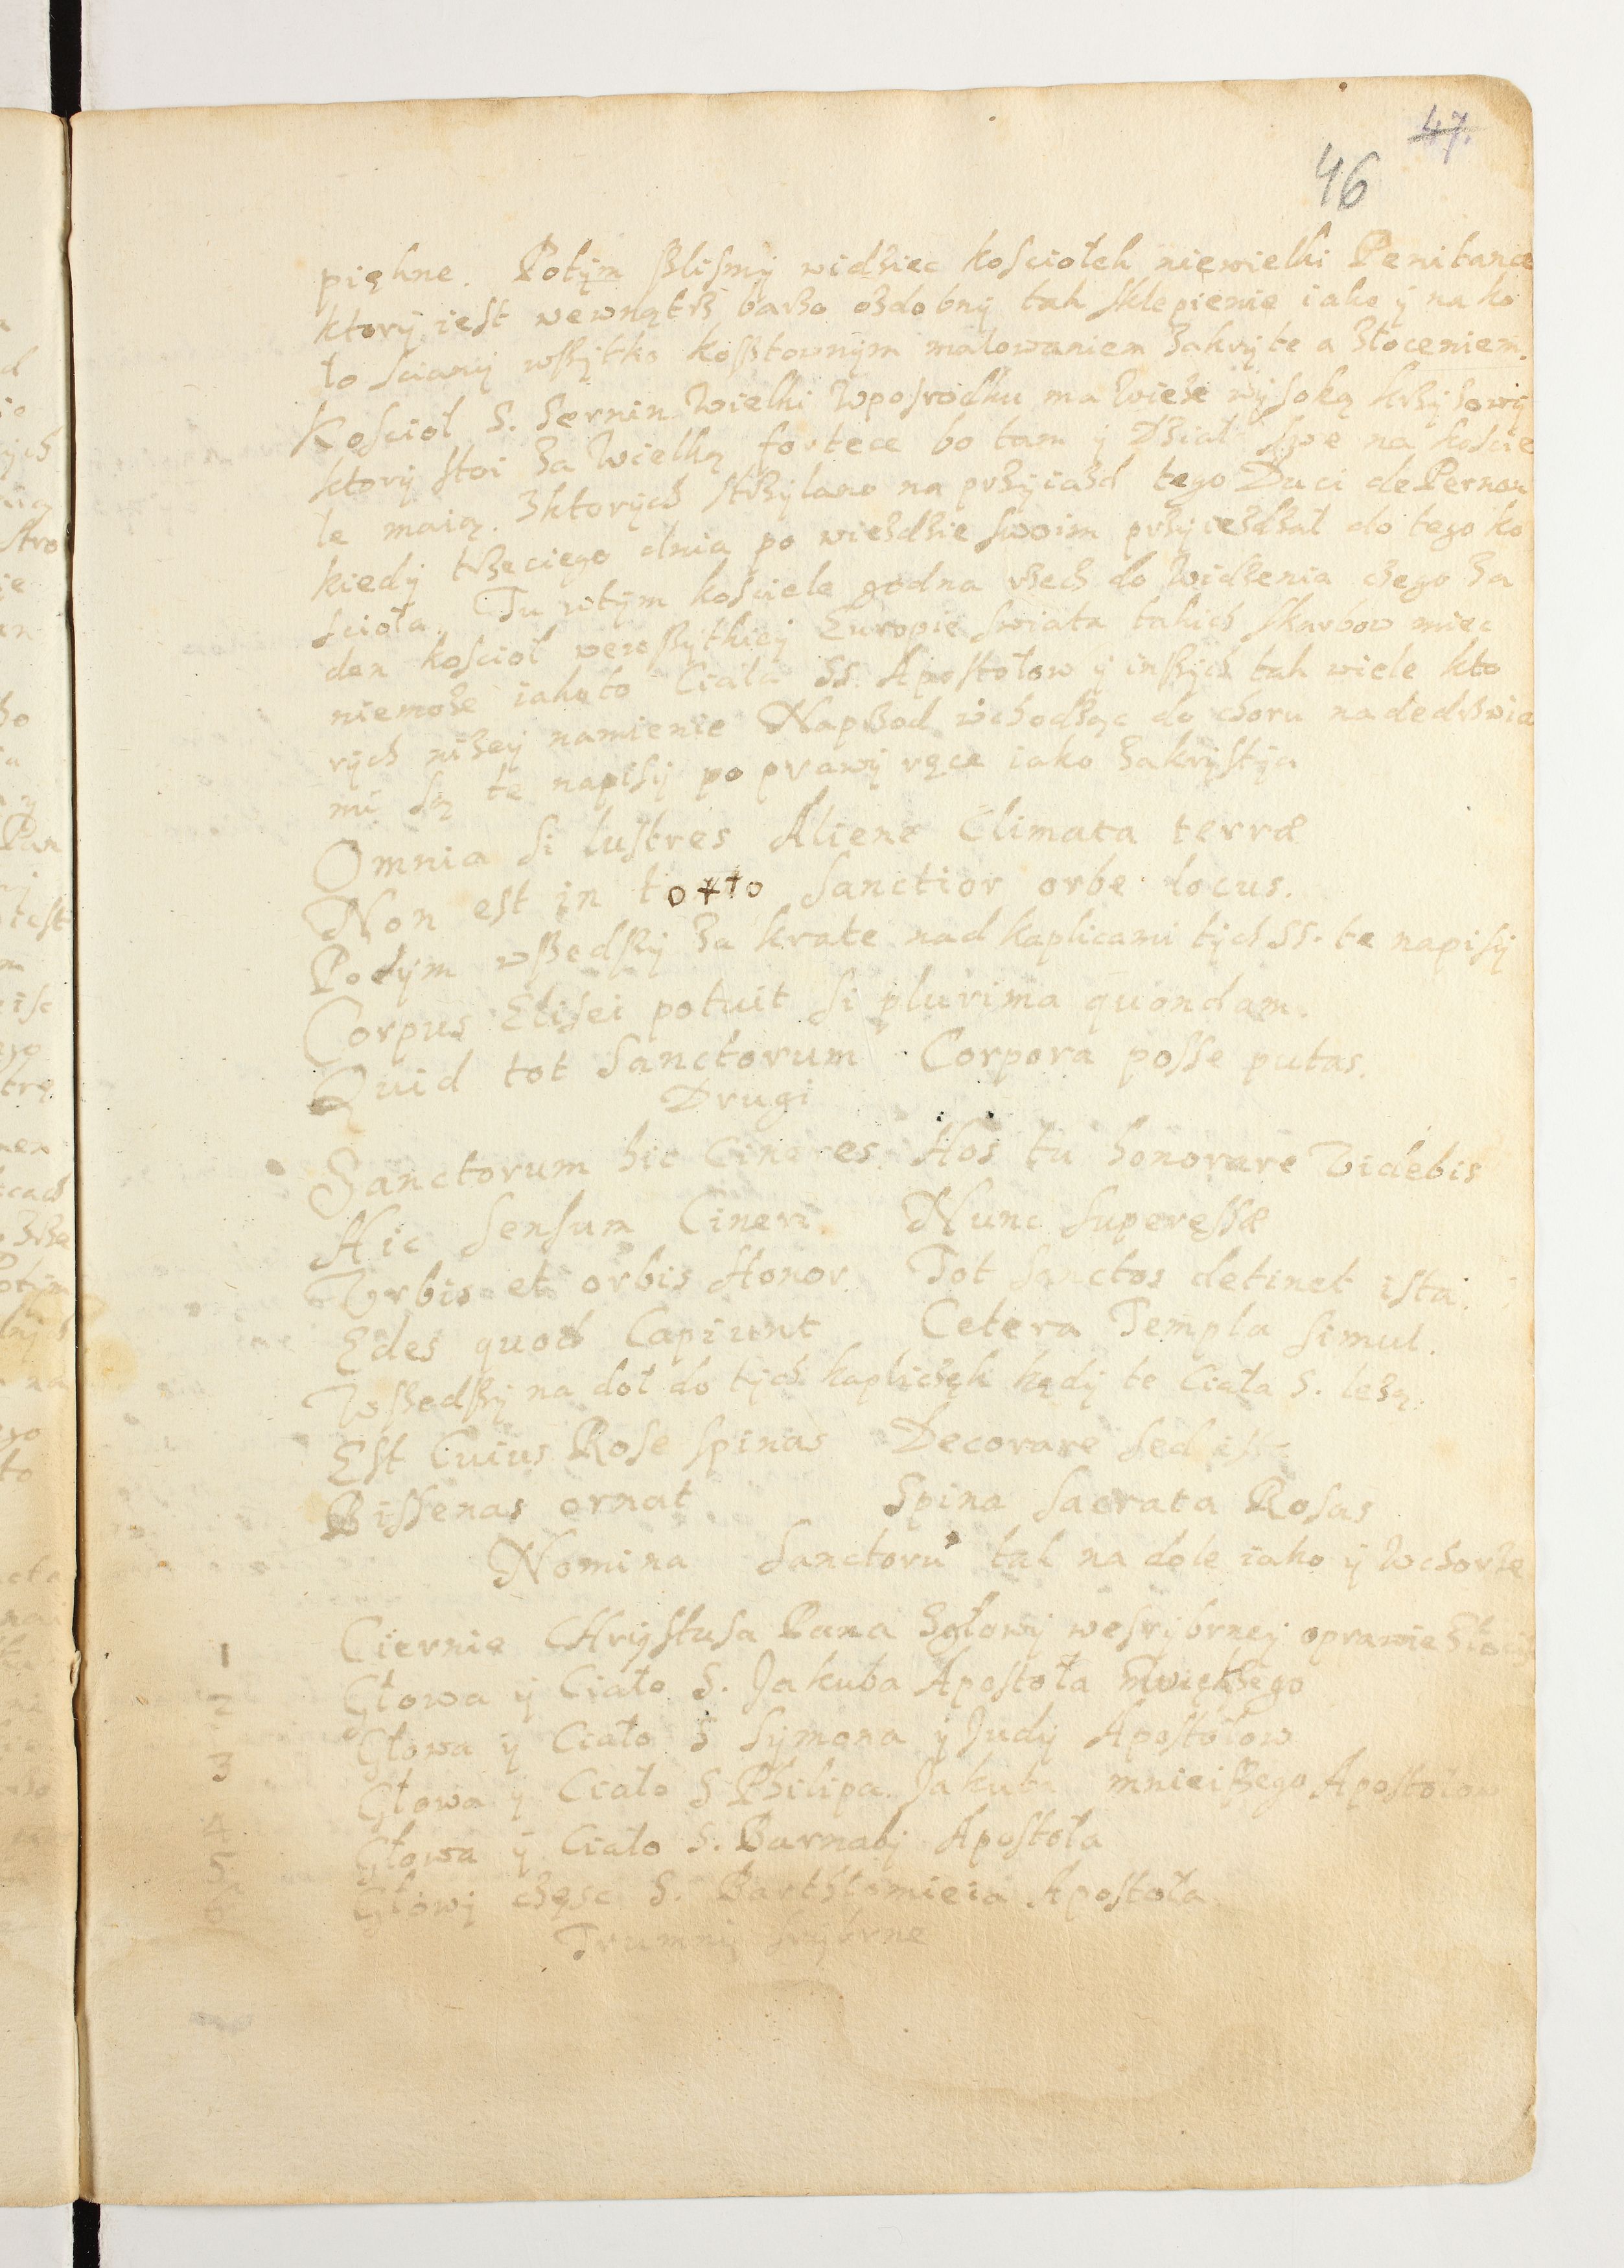 47.
46
pięhne. Potym ßlismÿ widziec kosciołek niewielki Penitance
ktorÿ iest wewnątrz barzo ozdobnÿ tak sklepienie iako ÿ na ko
ło scianÿ wszÿtko kosztownÿm malowaniem zakrÿte a złoceniem.
Koscioł S. Sernin Wielki Wposrodku ma Wieże wÿsoką krzÿżowÿ
ktorÿ stoi za Wielką fortece bo tam ÿ Dział swe na koscie
le maią. Zktorÿch strzÿlano na przÿiazd tego Duci de Pernon
kiedÿ trzeciego dnia po wieździe swoim przÿieżdżał do tego ko
scioła. Tu wtÿm kosciele godna rzecz do Widzenia czego ża
den koscioł wewszÿtkieÿ Europie swiata takich skarbow miec
niemoże iakoto Ciała SS. Apostołow ÿ inszÿch tak wiele kto
rÿch niżeÿ namienie Napzod wchodząc do choru nadedrzwia
mi są te napisÿ po prawÿ ręce iako zakrÿstÿa
Omnia si lustres Aliene Climata terræ
Non est in totto Sanctior orbe locus.
Potÿm wszedszÿ za krate nad kaplicami tÿch SS. te napisÿ
Corpus Elisei potuit si plurima quondam.
Quid tot Sanctorum Corpora posse putas.
Drugi
Sanctorum hic Cineres Hos tu honorare Videbis
Hic sensum Cineri Nunc superessæ
Vrbis et orbis Honor. Tot Sanctos detinet ista.
Edes quod Capiunt Cetera Templa simul.
Wszedszÿ na doł do tÿch kapliczęk kędÿ te Ciała S. leżą.
Est Cuius Rose spinas Decorare sed
Bissenas ornat Spina Sacrata Rosas
Nomina Sanctoru tak na dole iako ÿ Wchorze
1 Ciernie CHrÿstusa Pana Zgłowÿ wesrÿbrneÿ oprawie
2 Głowa ÿ Ciało S. Jakuba Apostoła Większego
3 Głowa ÿ Ciało S Sÿmona ÿ Judÿ Apostołow
4 Głowa ÿ Ciało S Philipa Jakuba mnieißego Apostołow
5 Głowa ÿ Ciało S. Barnabÿ Apostoła
6 Głowÿ częsc S. Barthłomieia Apostoła
Trumnÿ srÿbrne